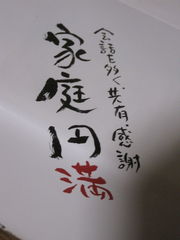 会話を多く、共有、感謝
家庭円満